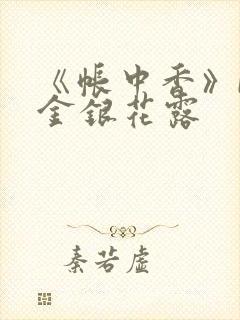 《帐中香》
金银花露
秦若虚